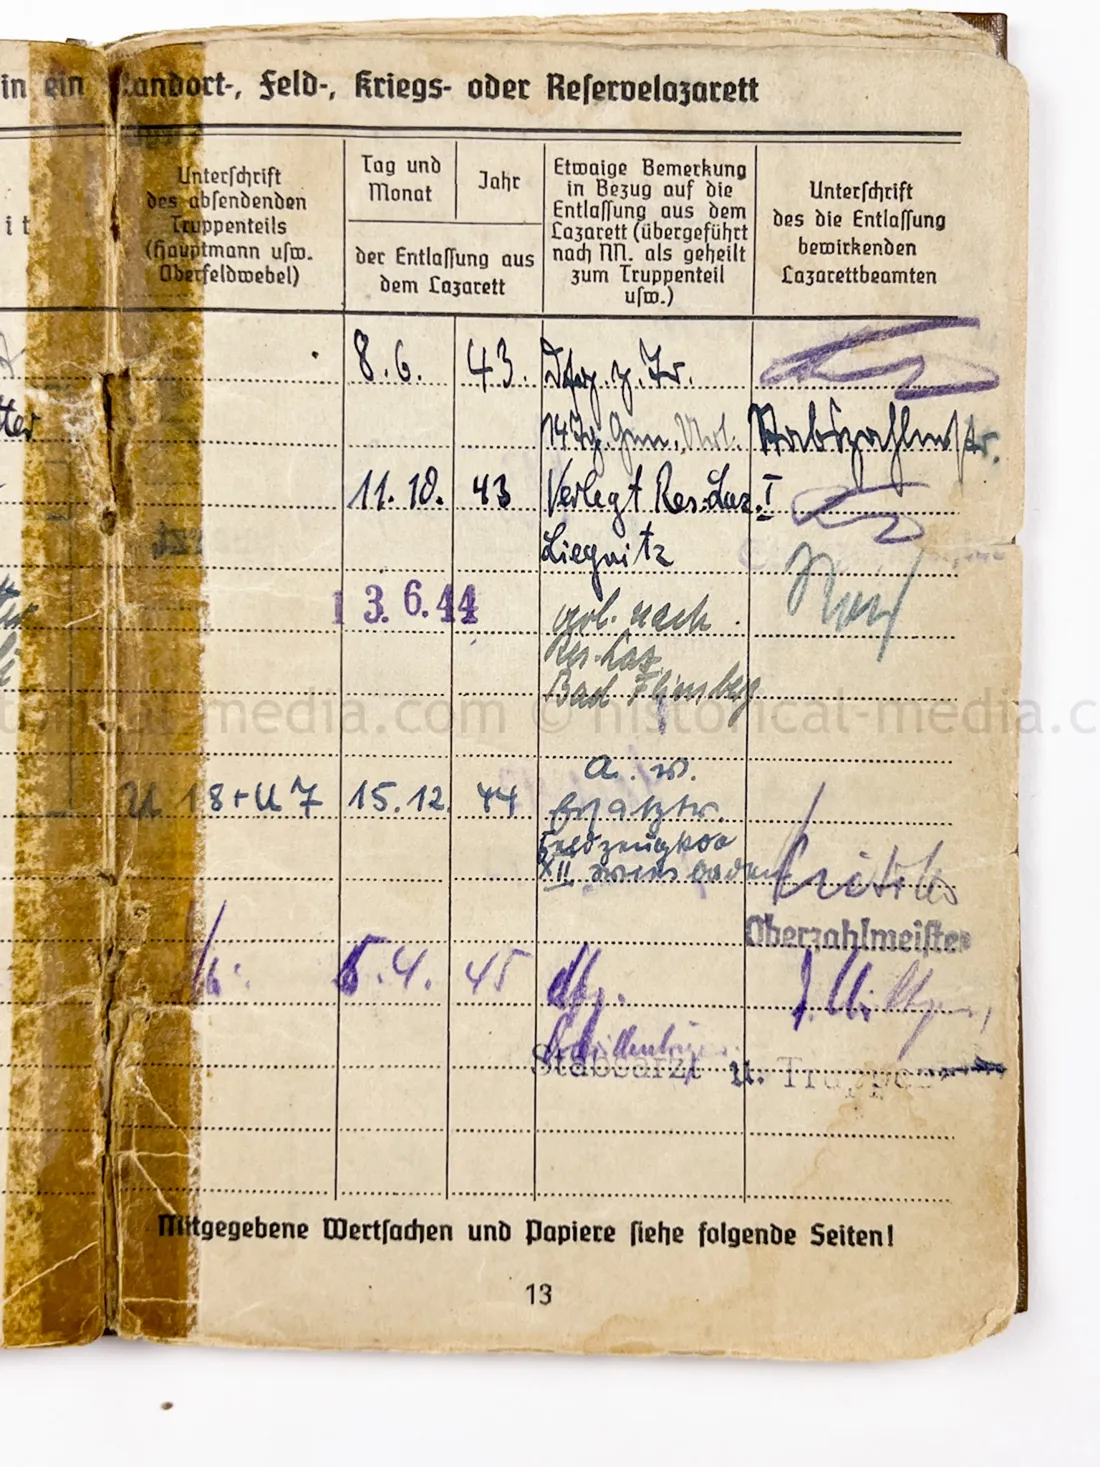 in ein Standort-, Feld-, Kriegs- oder Reservelazarett
Unterschrift
des absendenden
Truppenteils
(Hauptmann usw.
Oberfeldwebel)
Tag und
Monat
Jahr
der Entlassung aus
dem Lazarett
Etwaige Bemerkung
in Bezug auf die
Entlassung aus dem
Lazarett (übergeführt
nach NN. als geheilt
zum Truppenteil
usw.)
Unterschrift
des die Entlassung
bewirkenden
Lazarettbeamten
it
8.6. 43.
tter Stabszahlmstr.
11.10. 43 Verlegt Res.Laz. I
Liegnitz
13.6.44 verl. nach
Res-Laz
Bad Flinsberg
historical-media.com © historical-media.c
a. w.
U 18+U7 15.12. 44 Ersatztr.
Feldzeugkdo
XII Wiesbaden
Oberzahlmeister
5.4. 45
Stabsarzt u. Truppen
Mitgegebene Wertsachen und Papiere siehe folgende Seiten!
13